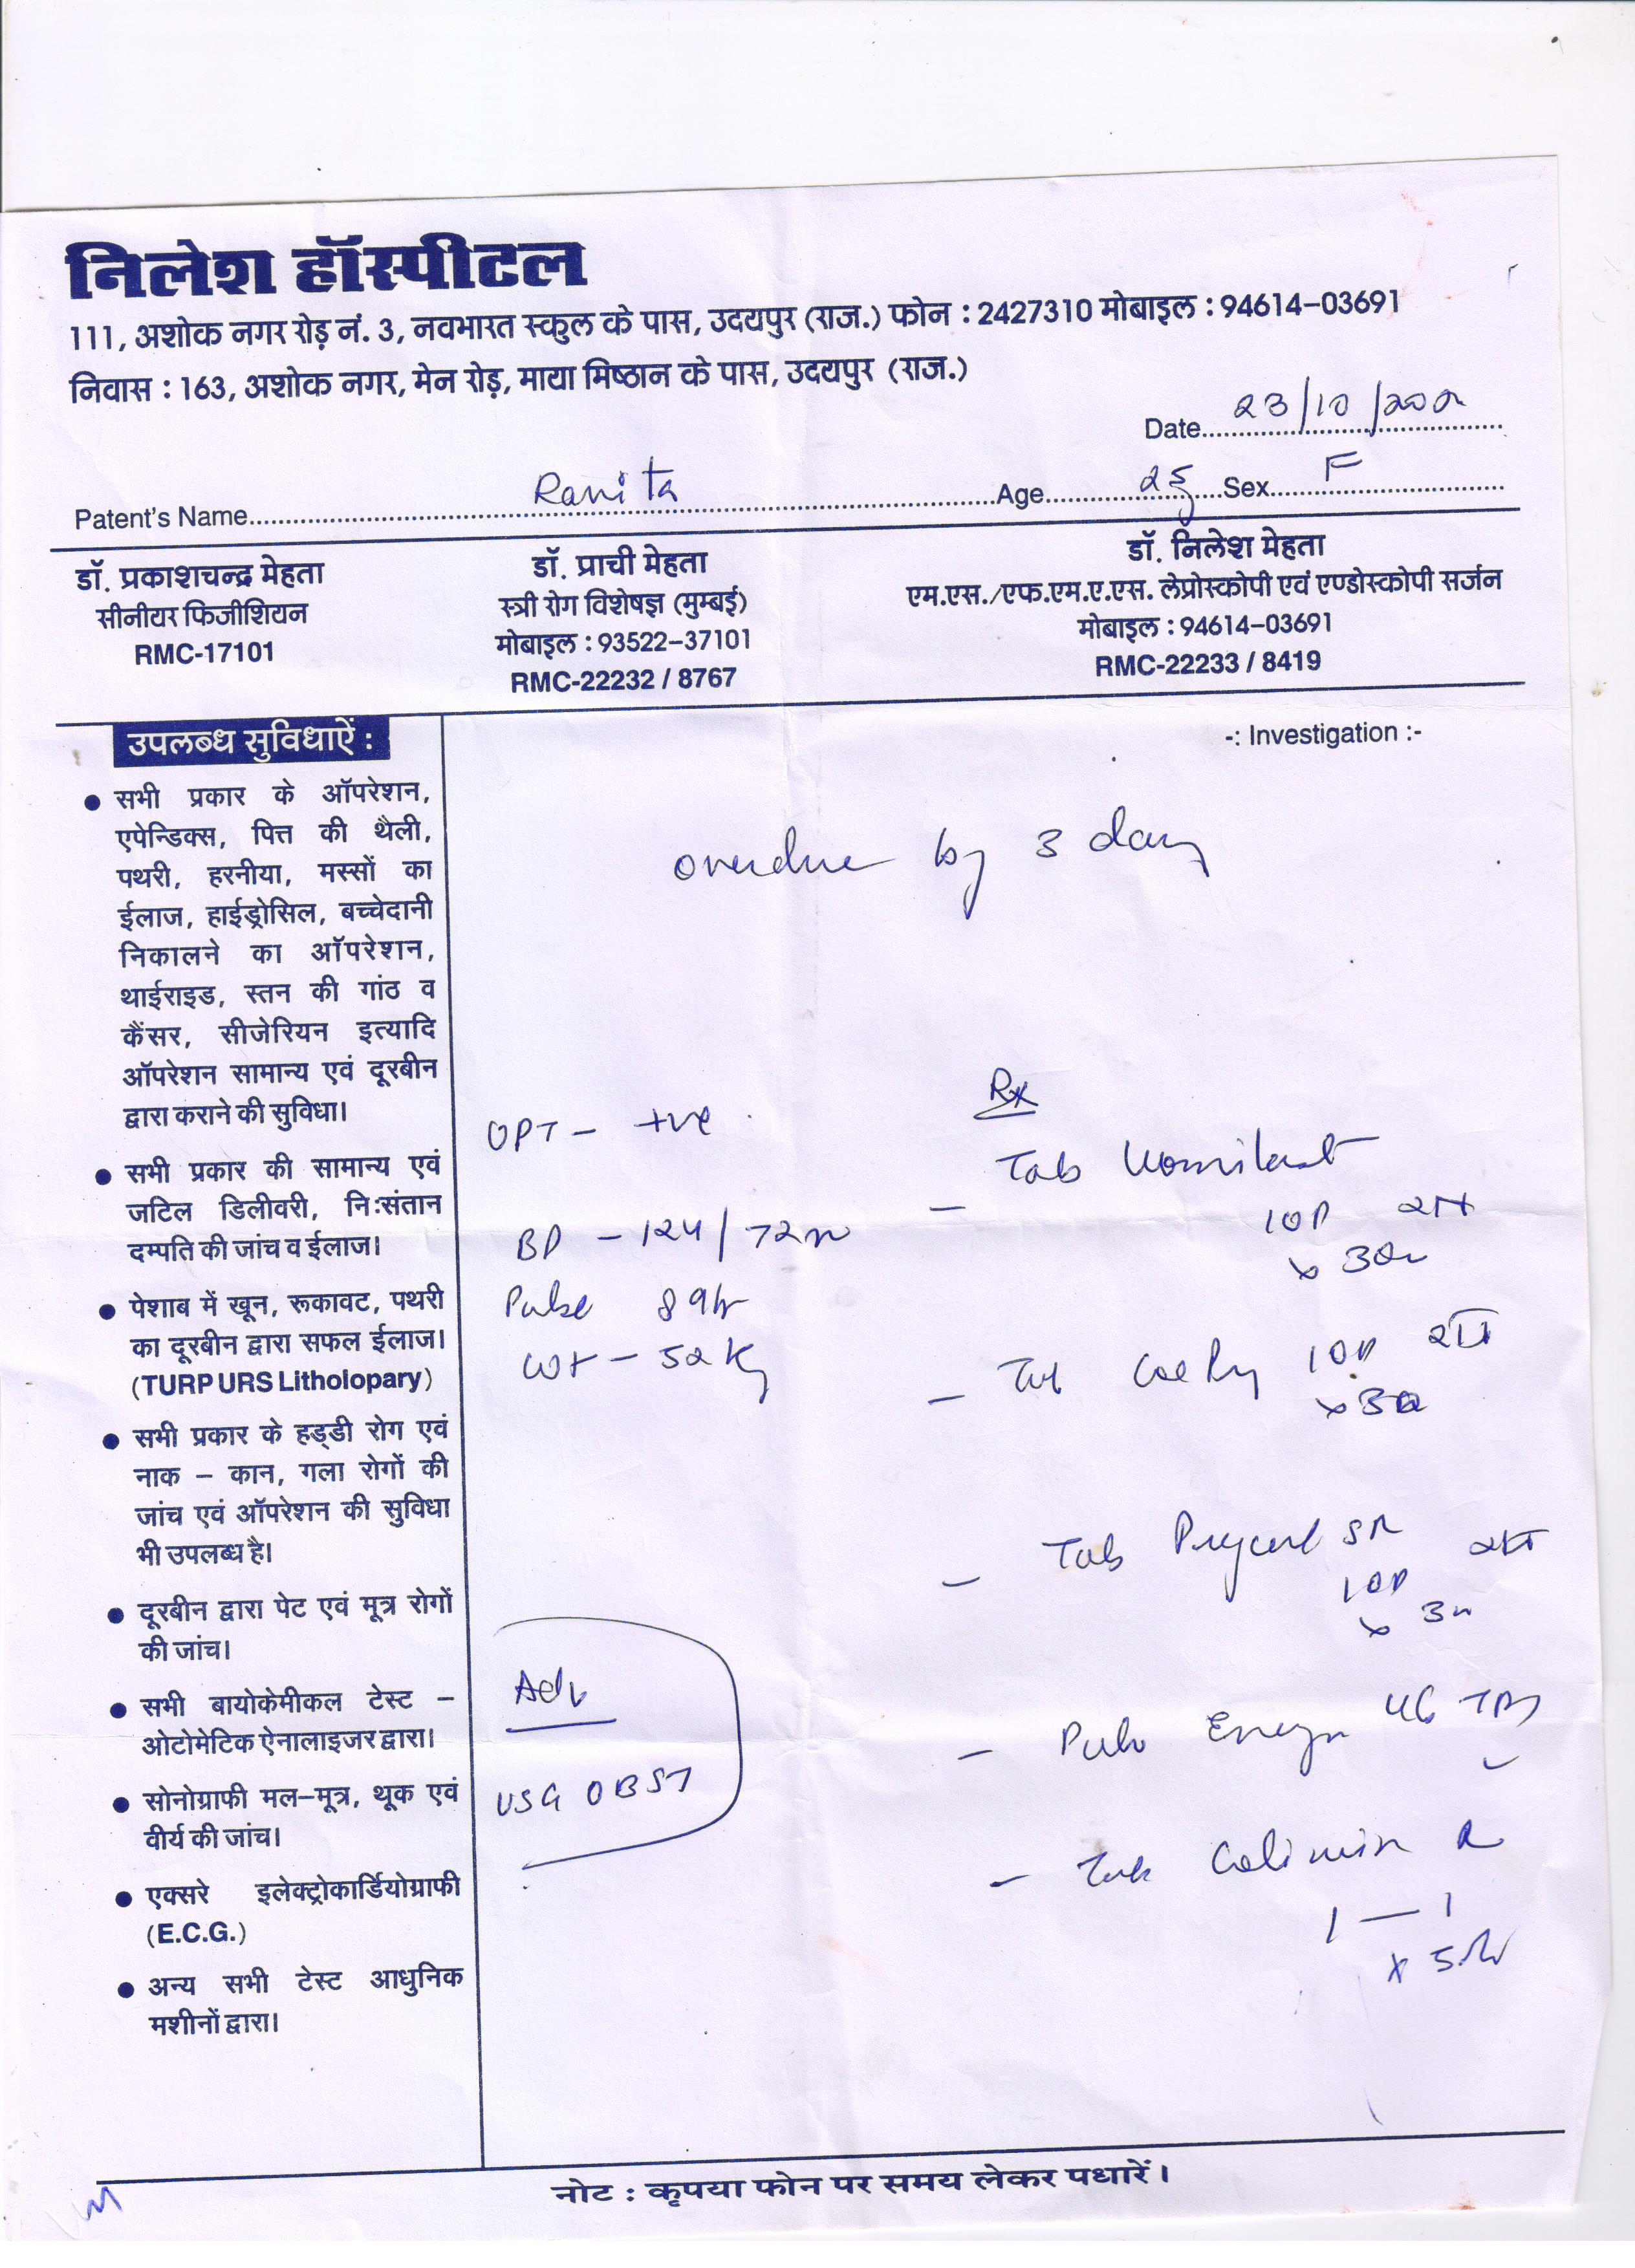 निलेश हॉस्पीटल
111, अशोक नगर रोड़ नं. 3, नवभारत स्कुल के पास, उदयपुर (राज.) फोन : 2427310 मोबाइल : 94614-03691
निवास : 163, अशोक नगर, मेन रोड़, माया मिष्ठान के पास, उदयपुर (राज.)
Date 23/10/
Patent's Name Ranita Age 25 Sex F
डॉ. प्रकाशचन्द्र मेहता
सीनीयर फिजीशियन
RMC-17101
डॉ. प्राची मेहता
स्त्री रोग विशेषज्ञ (मुम्बई)
मोबाइल : 93522-37101
RMC-22232 / 8767
डॉ. निलेश मेहता
एम.एस./एफ.एम.ए.एस. लेप्रोस्कोपी एवं एण्डोस्कोपी सर्जन
मोबाइल : 94614-03691
RMC-22233 / 8419
उपलब्ध सुविधाऐं :
● सभी प्रकार के ऑपरेशन,
एपेन्डिक्स, पित्त की थैली,
पथरी, हरनीया, मस्सों का
ईलाज, हाईड्रोसिल, बच्चेदानी
निकालने का ऑपरेशन,
थाईराइड, स्तन की गांठ व
कैंसर, सीजेरियन इत्यादि
ऑपरेशन सामान्य एवं दूरबीन
द्वारा कराने की सुविधा।
● सभी प्रकार की सामान्य एवं
जटिल डिलीवरी, निःसंतान
दम्पति की जांच व ईलाज।
● पेशाब में खून, रूकावट, पथरी
का दूरबीन द्वारा सफल ईलाज।
(TURP URS Litholopary)
● सभी प्रकार के हड्डी रोग एवं
नाक - कान, गला रोगों की
जांच एवं ऑपरेशन की सुविधा
भी उपलब्ध है।
● दूरबीन द्वारा पेट एवं मूत्र रोगों
की जांच।
● सभी बायोकेमीकल टेस्ट -
ओटोमेटिक ऐनालाइजर द्वारा।
● सोनोग्राफी मल-मूत्र, थूक एवं
वीर्य की जांच।
● एक्सरे इलेक्ट्रोकार्डियोग्राफी
(E.C.G.)
● अन्य सभी टेस्ट आधुनिक
मशीनों द्वारा।
-: Investigation :-
overdue by 3 days
UPT - +ve
BP - 124/72
Pulse 89
wt - 52 kg
Adv
USG OBST
Rx
- Tab
10D
x 30
- Tab 10D
x 30
- Tab SR
10D
- 
- Tab R
1 - 1
नोट : कृपया फोन पर समय लेकर पधारें।